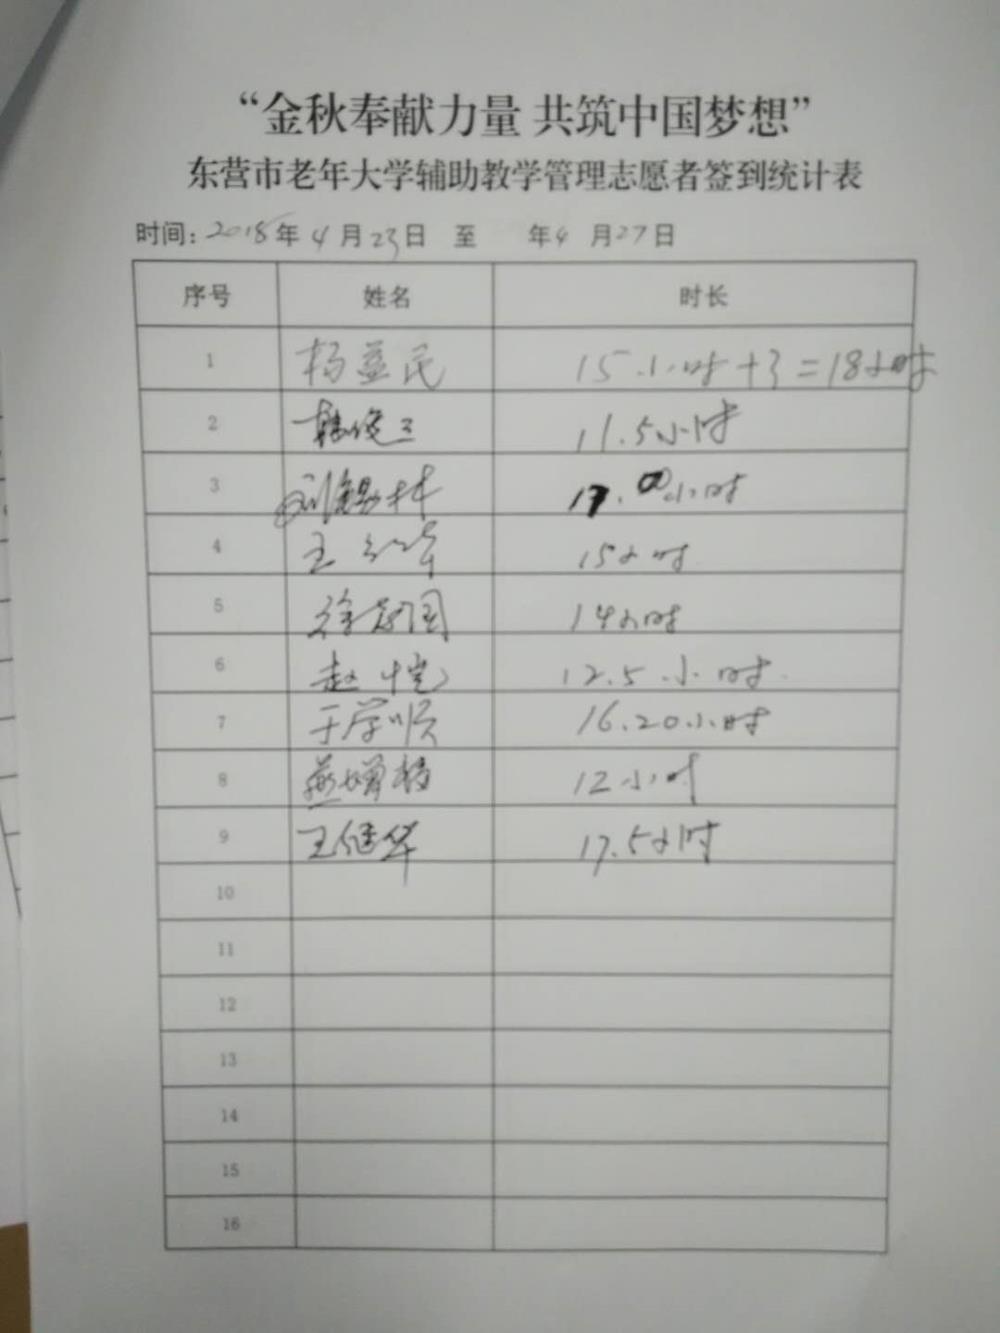 “金秋奉献力量 共筑中国梦想”
东营市老年大学辅助教学管理志愿者签到统计表
时间: 2018年4月23日 至 年4月27日
序号 姓名 时长
1 杨益民 15小时+3=18小时
2 韩俊三 11.5小时
3 刘锡林 17.00小时
4 王 15小时
5 徐 国 14小时
6 赵恺 12.5小时
7 于学顺 16.20小时
8 燕增 12小时
9 王继华 17.5小时
10
11
12
13
14
15
16